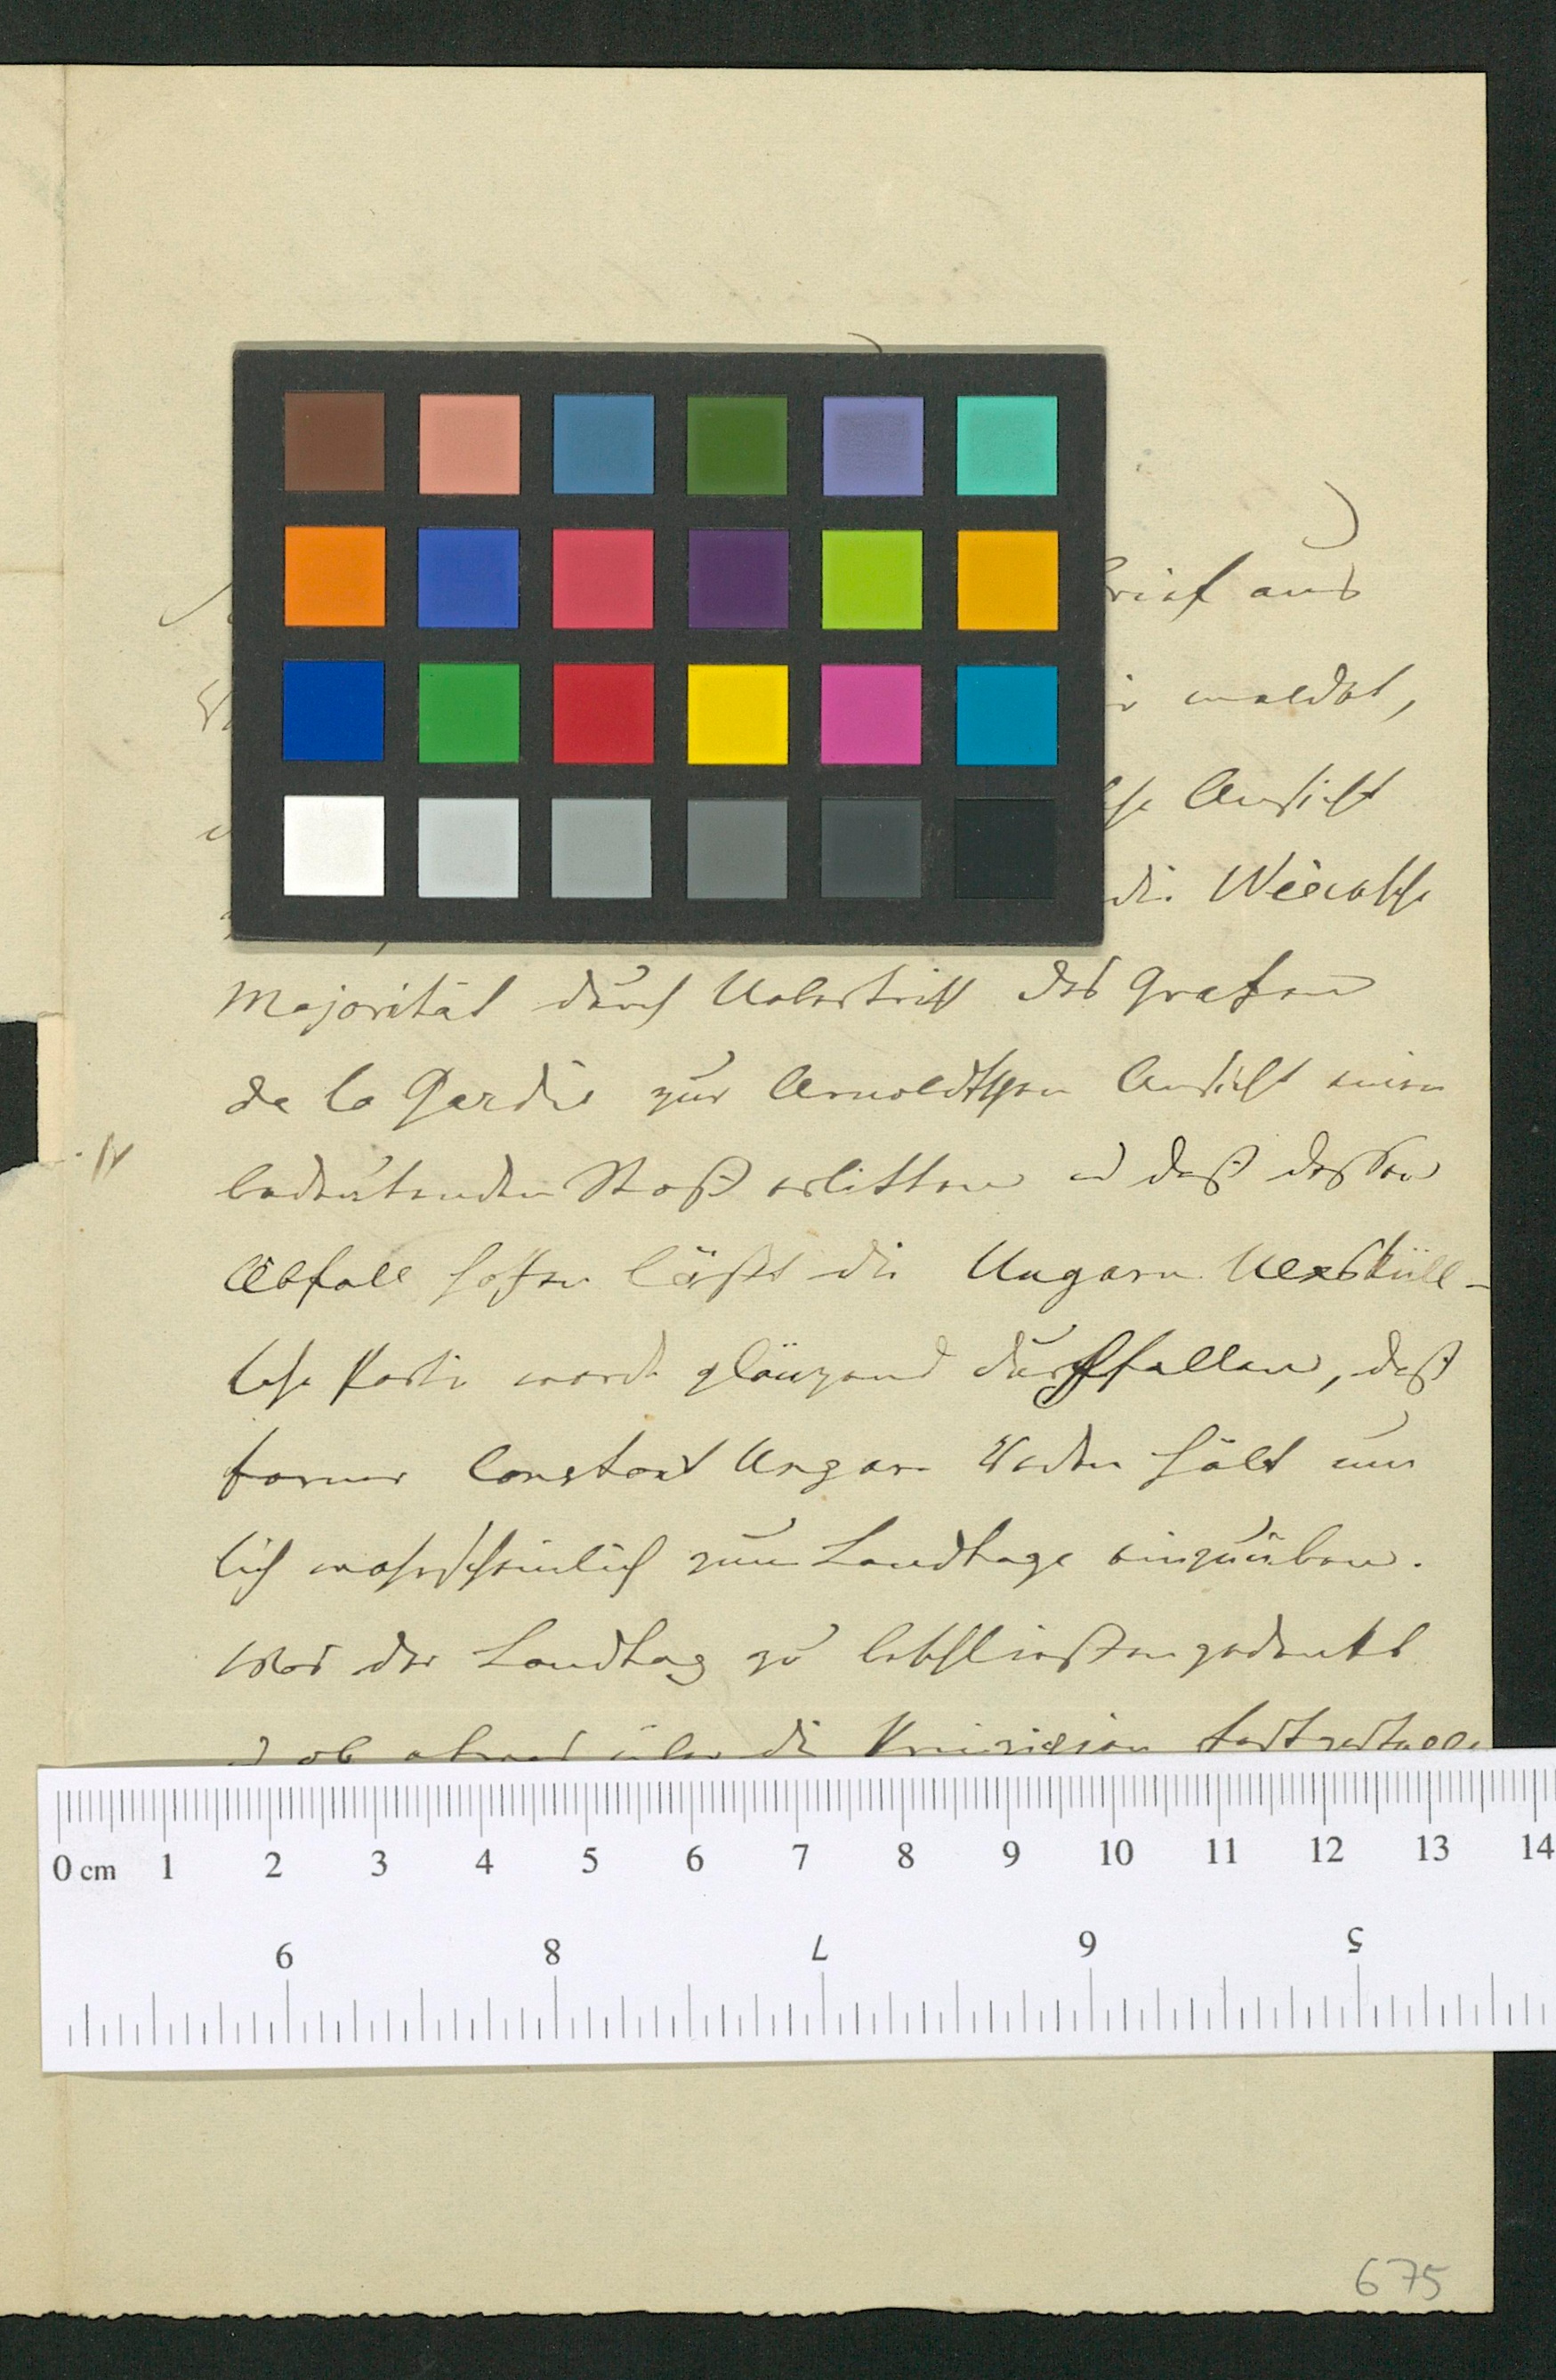 Brief aus
meldet,
Ansicht
die Wieratsche
Majorität durch Uebertritt des Grafen
de la Gardie zur Arnoldtschen Ansicht einen
bedeutenden Stoß erlitten u daß dessen
Abfall hoffen läßt die Ungarn Uexküll-
sche Partie werde glänzend durchfallen, daß
ferner Constant Ungarn Reden hält um
sich wahrscheinlich zum Landtage einzuüben.
Was der Landtag zu beschließen gedenkt
ob etwas über die
0 cm 1 2 3 4 5 6 7 8 9 10 11 12 13 14
9 8 7 6 5
675